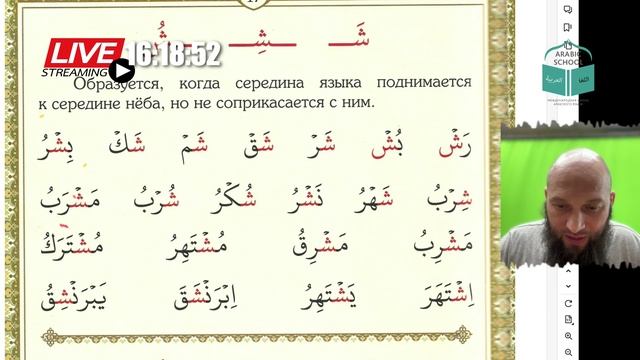 17
شَـ ـشِـ ـشُ
LIVE
STREAMING
16:18:52
Образуется, когда середина языка поднимается
к середине нёба, но не соприкасается с ним.
رَشْ بُشْ شَرْ شَقْ شَمْ شَكْ بِشْرُ
شِرْبُ شَهْرُ نَشْرُ شُكْرُ شُرْبُ مَشْرَبُ
مَشْرِبُ مَشْرِقُ مُشْتَهِرُ مُشْتَرَكُ
اِشْتَهَرَ يَشْتَهِرُ اِبْرَنْشَقَ يَبْرَنْشِقُ
ARABIC
SCHOOL
العربية اللغة